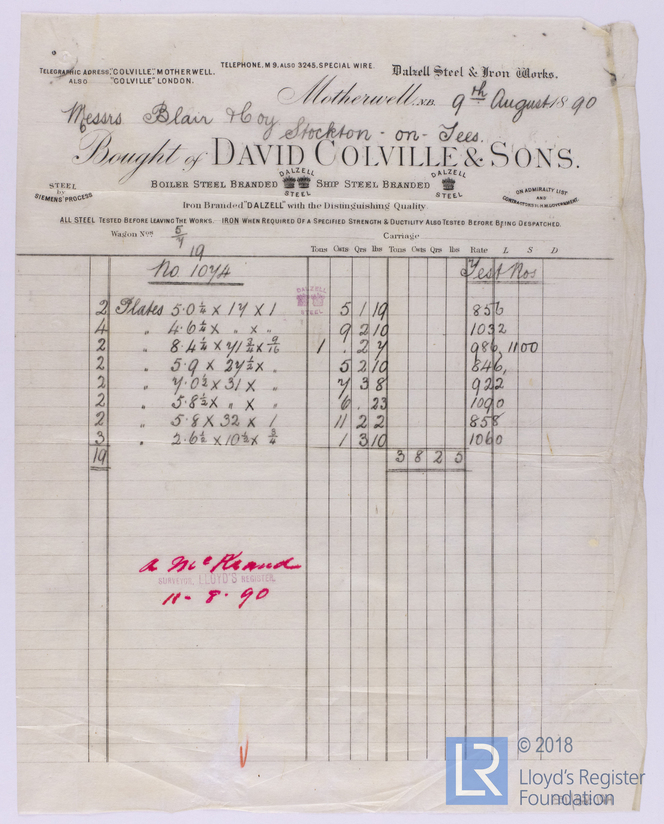 TELEGRAPHIC ADRESS, "COLVILLE", MOTHERWELL.
ALSO "COLVILLE" LONDON.
TELEPHONE. M 9. ALSO 3245, SPECIAL WIRE.
Dalzell Steel & Iron Works.
Motherwell, N.B. 9th August 1890
Messrs Blair & Coy
Stockton-on-Tees.
Bought of DAVID COLVILLE & SONS.
STEEL BY SIEMENS' PROCESS
BOILER STEEL BRANDED DALZELL STEEL SHIP STEEL BRANDED DALZELL STEEL
ON ADMIRALTY LIST AND CONTRACTORS TO H.M. GOVERNMENT.
Iron Branded "DALZELL" with the Distinguishing Quality.
ALL STEEL TESTED BEFORE LEAVING THE WORKS. IRON WHEN REQUIRED OF A SPECIFIED STRENGTH & DUCTILITY ALSO TESTED BEFORE BEING DESPATCHED.
Wagon Nos 5/9 Carriage
19
Tons Cwts Qrs lbs Tons Cwts Qrs lbs Rate L S D
No. 1074 Test Nos
DALZELL STEEL
2 Plates 5.0¼ x 17 x 1 5 1 19 856
4 " 4.6¼ x " x " 9 2 10 1032
2 " 8.4¼ x 71¾ x 9/16 1 . 2 7 986, 1100
2 " 5.9 x 27½ x " 5 2 10 846,
2 " 7.0½ x 31 x " 7 3 8 922
2 " 5.8½ x " x " 6 . 23 1090
2 " 5.8 x 32 x 1 11 2 2 858
3 " 2.6½ x 10½ x ¾ 1 3 10 1060
19 3 8 2 5
SURVEYOR, LLOYD'S REGISTER.
11-8-90
LR © 2018
Lloyd's Register
Foundation